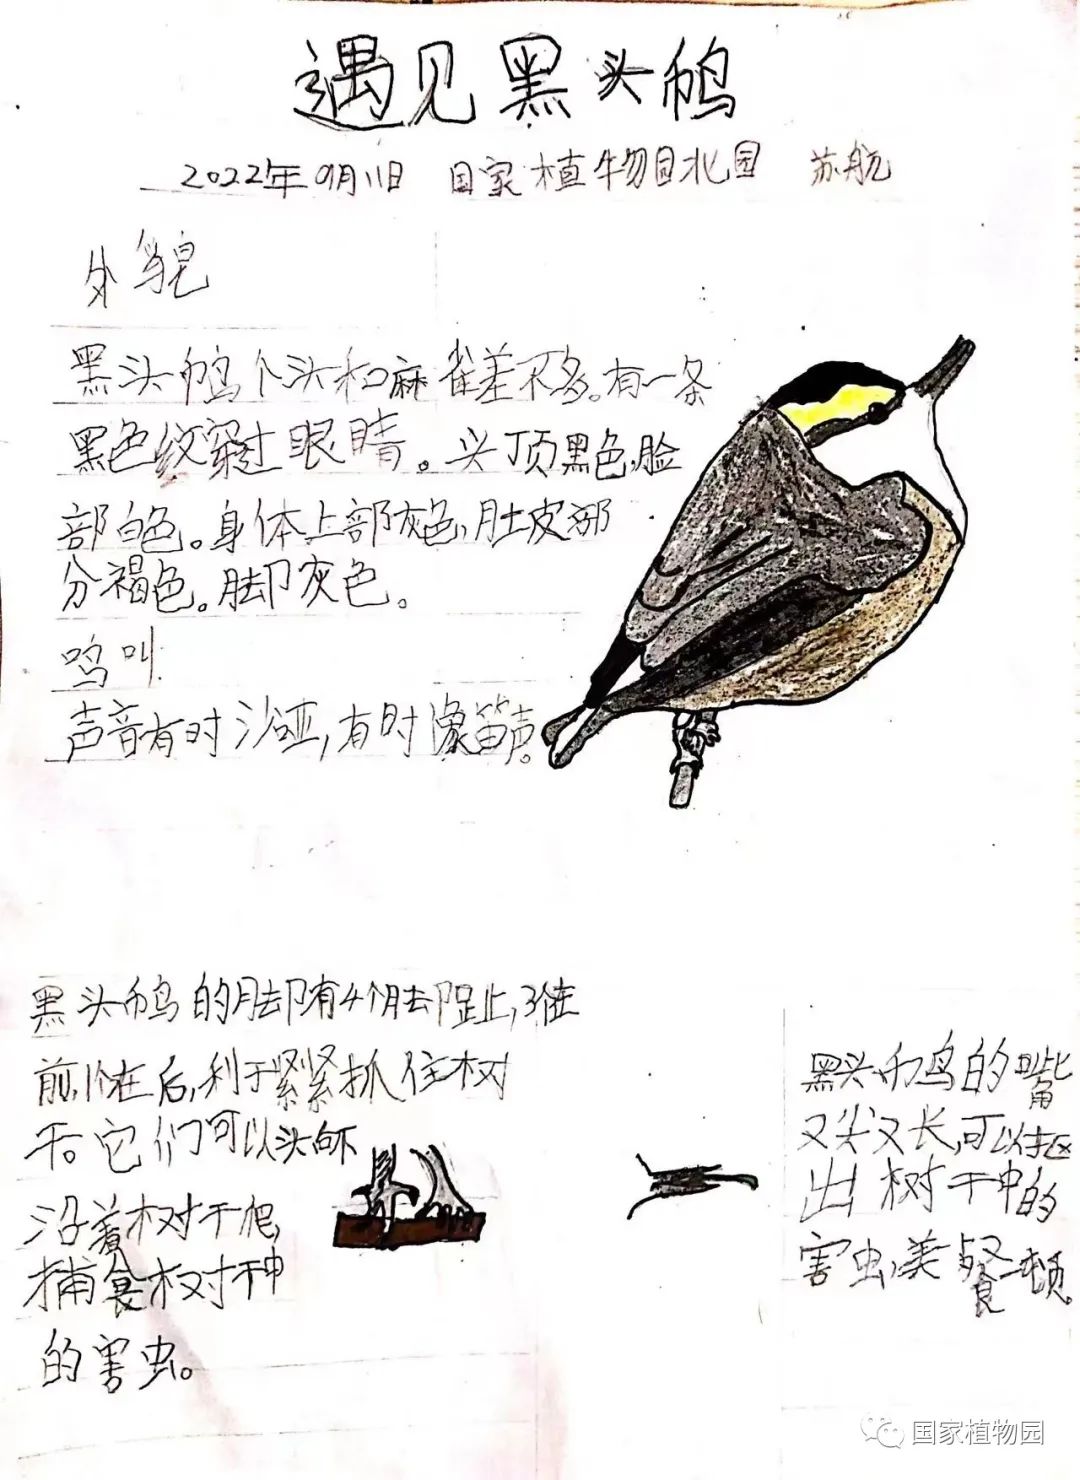 遇见黑头䴓
2022年9月11日 国家植物园北园 苏航
外貌
黑头䴓个头和麻雀差不多。有一条
黑色纹穿过眼睛。头顶黑色,脸
部白色。身体上部灰色,肚皮部
分褐色。脚灰色。
鸣叫
声音有时沙哑,有时像笛声。
黑头䴓的脚有4个脚趾,3个在
前,1个在后,利于紧紧抓住树
干。它们可以头向下
沿着树干爬,
捕食树干中
的害虫。
黑头䴓的嘴
又尖又长,可以抠
出树干中的
害虫,美餐一顿。
国家植物园